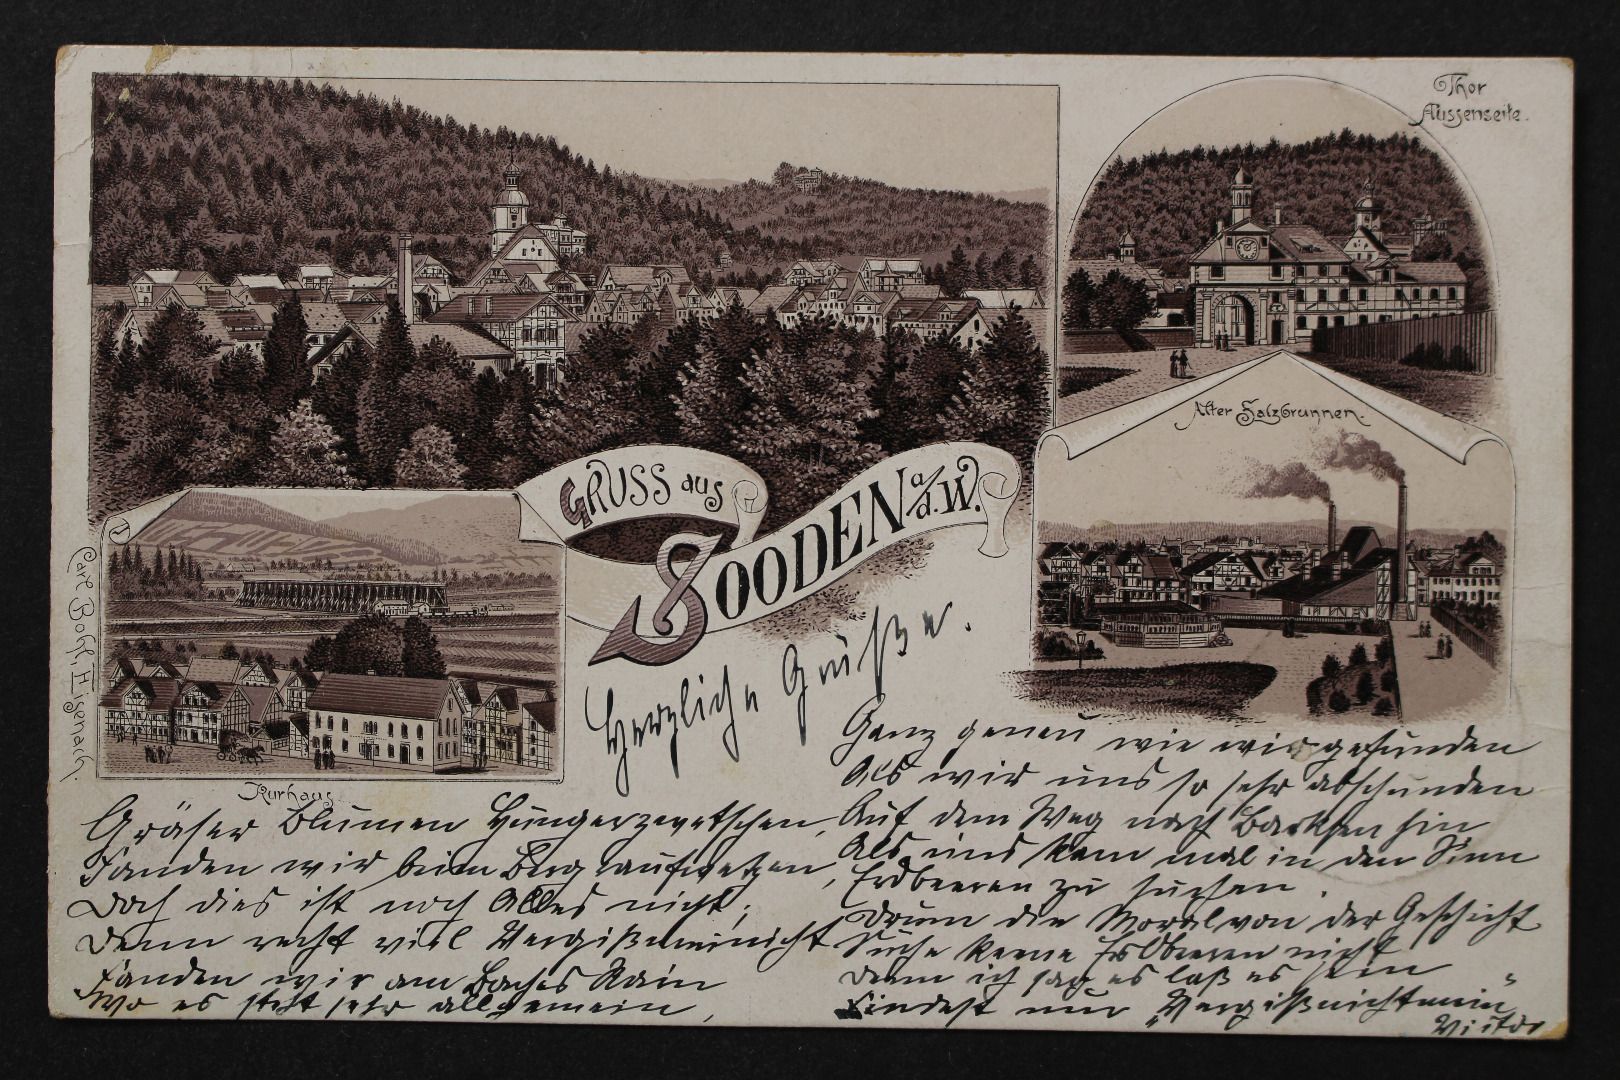 Thor
Aussenseite.
Alter Salzbrunnen.
GRUSS aus
SOODEN a/d. W.
Kurhaus
Herzliche Grüße.
Gräser Blumen Hungerzwetschen,
Fanden wir beim Berg rauf
Doch dies ist noch Alles nicht;
Denn recht viel Vergißmeinnicht
Fanden wir am Baches Rain
Wo es steht sehr allgemein,
Ganz genau wie wir gefunden
Als wir uns so sehr abschunden
Auf dem Weg nach hin
Als uns kam mal in den Sinn
Erdbeeren zu suchen.
Drum die Moral von der Geschicht
Suche keine Erdbeeren nicht
Denn ich sag es laß es sein
Findest nur "Vergißnichtmein"